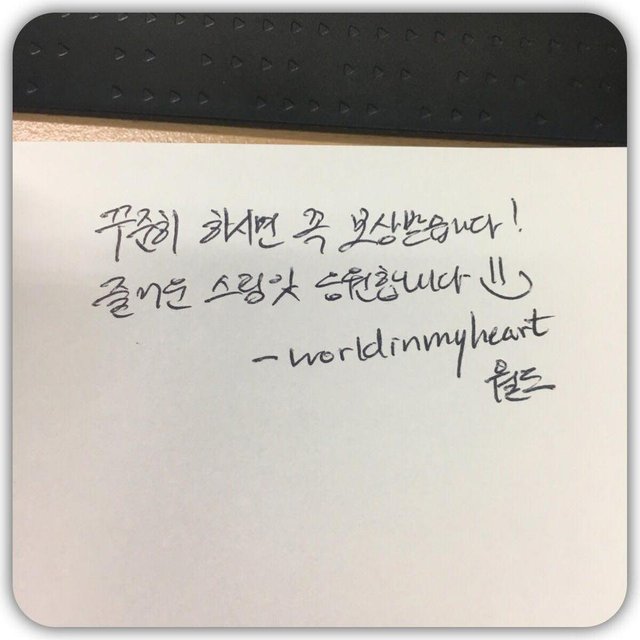 꾸준히 하시면 꼭 보상받습니다!
즐거운 스팀잇 응원합니다 :)
-worldinmyheart
월드